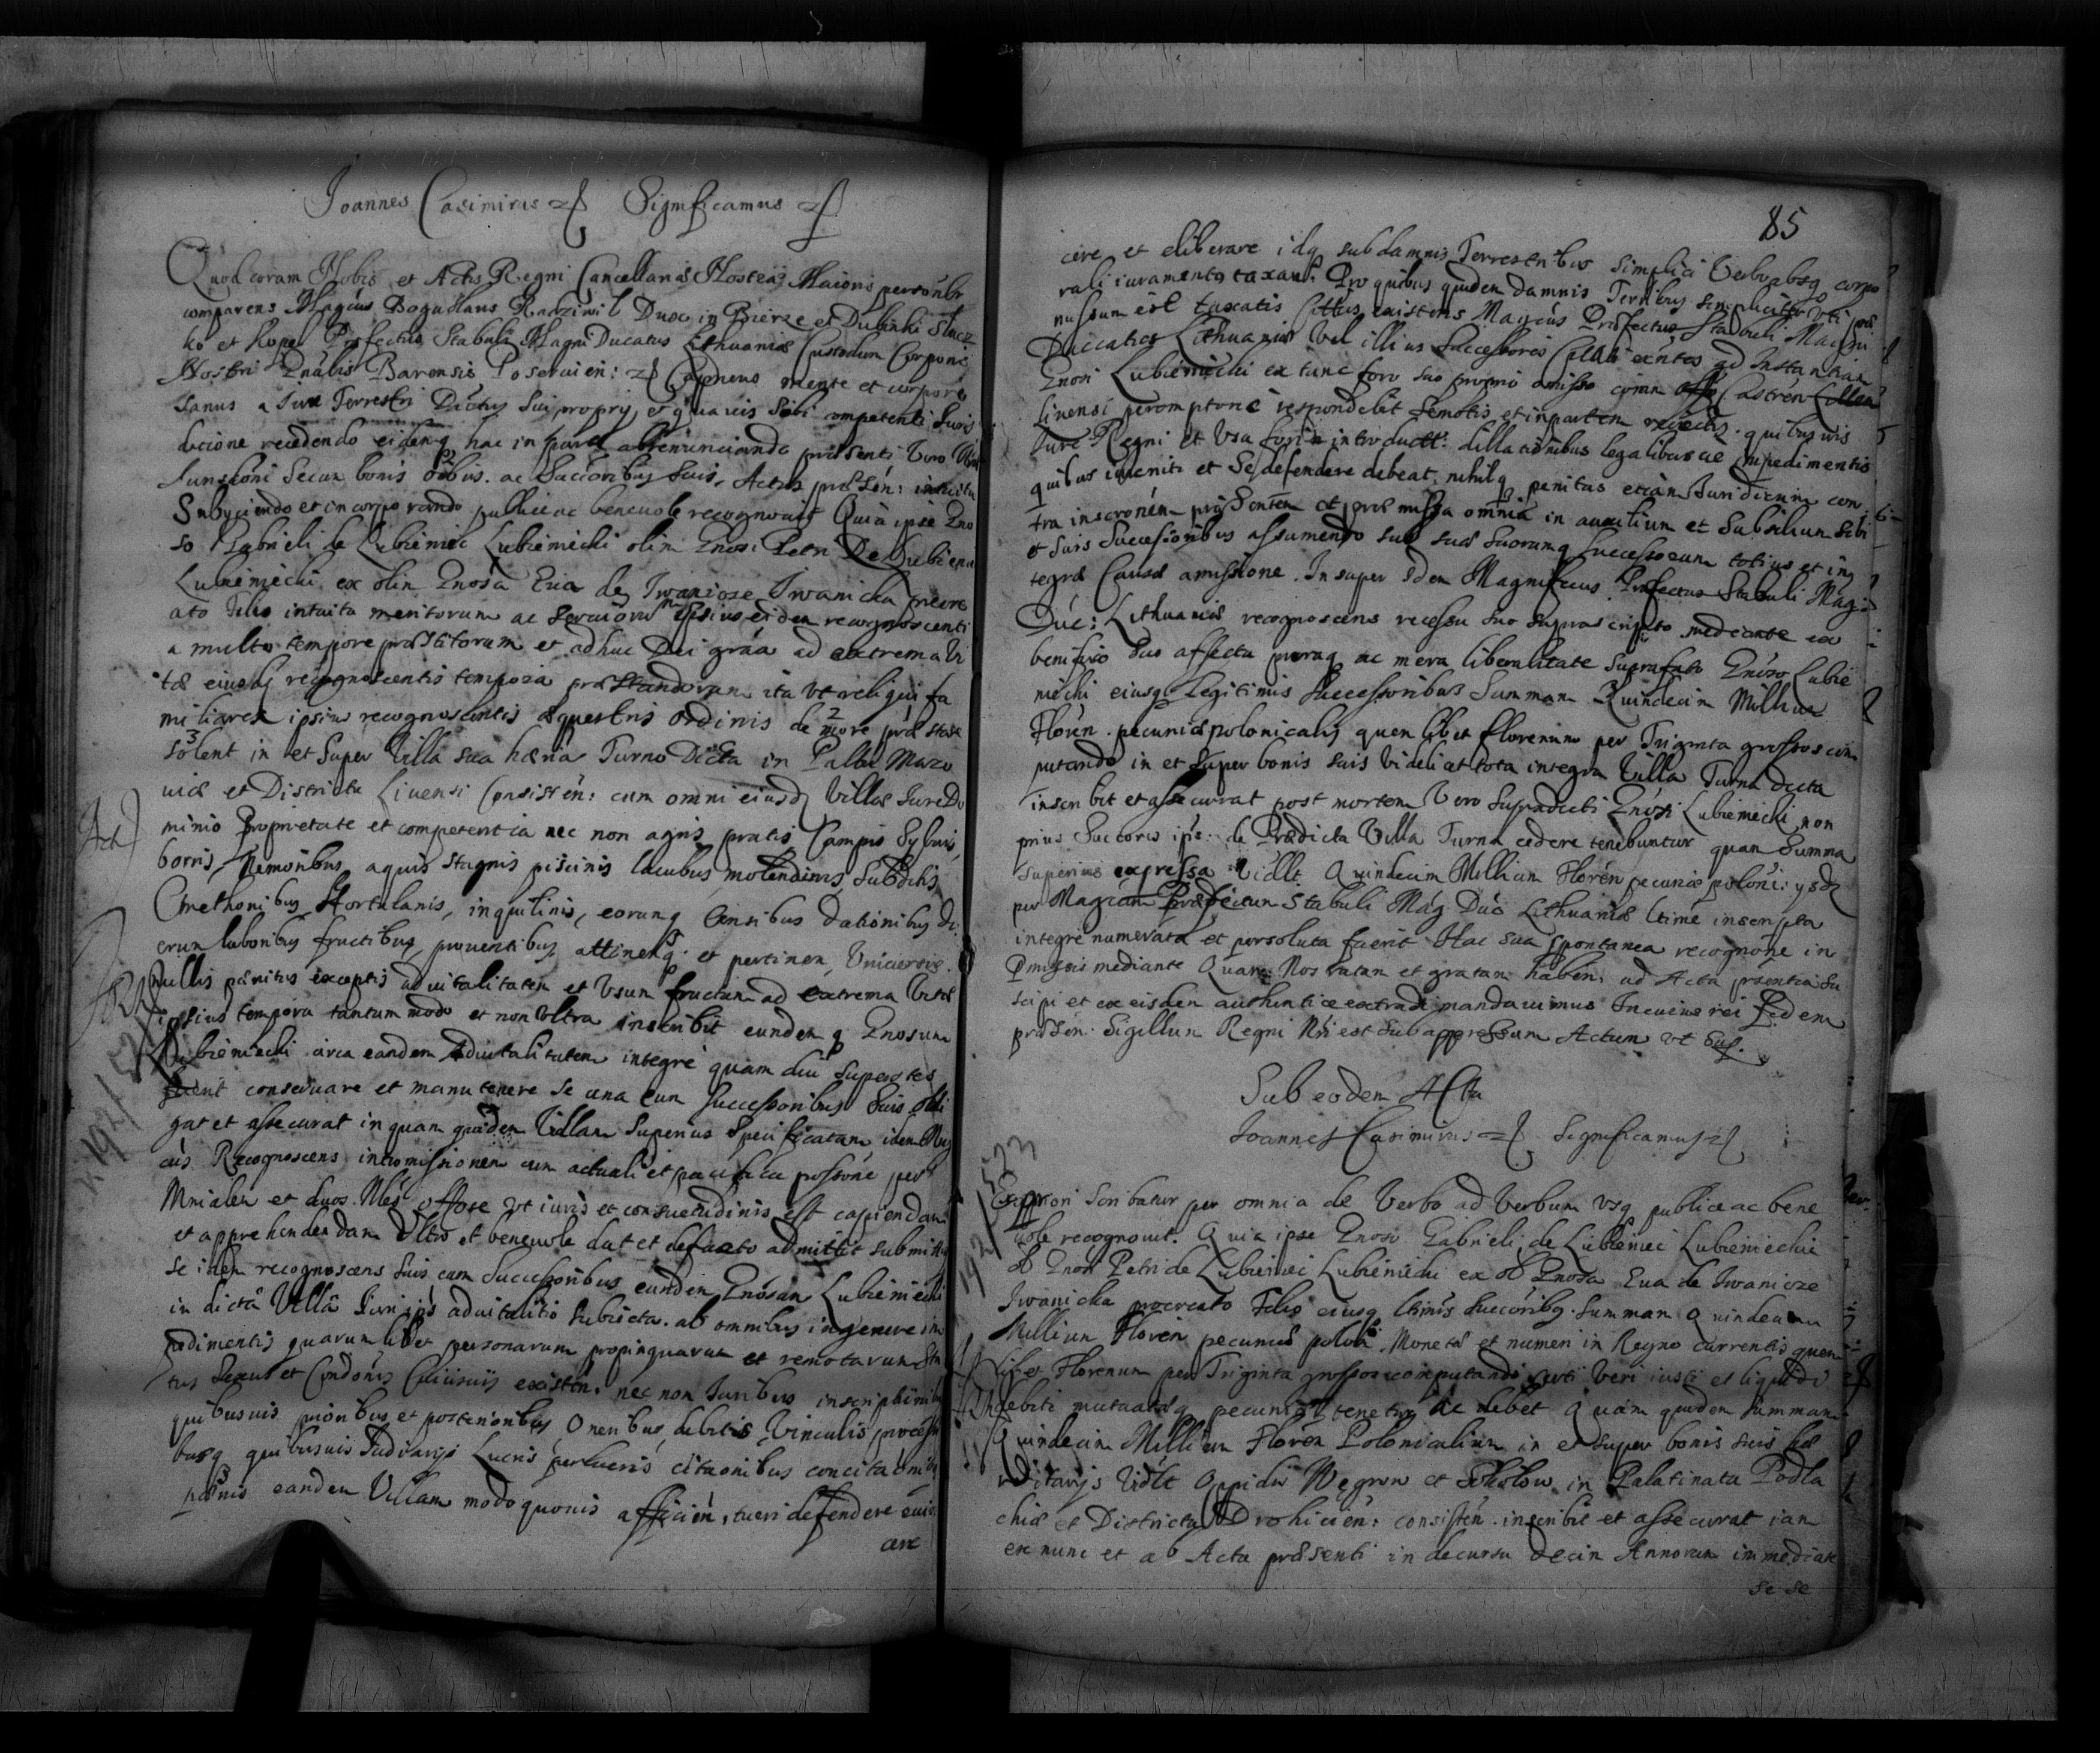 Joannes Casimirus Significamus
Quod coram Nobis et Actis Regni Cancellariæ Nostræ Maioris personalr
comparens Magcus Boguslaus Radziwil Dux in Bierze et Dubinki Slucz
ko et Kopel Præfectus Stabuli Magni Ducatus Lithuaniæ Custodum Corporis
Nostri Gnalis Barensis Poservien: Capneus mente et corpore
sanus a sive Terrestri Dictus sui proprij et quavis sibi competenti Juris
dictione recedendo eidemq hac in parte abrenunciando præsenti vero
Junsctioni secum bonis oibus. ac Succoribus suis, Actus præsen:
Subyciendo et incorporando publice ac benevole recognovit Quia ipse Gno
so Gabrieli de Lubieniec Lubieniecki olim Gnosi Petri De Lubienie
Lubieniecki ex olim Gnosa Eva de Iwanioze Iwanicka procre
ato Filio intuitu meritorum ac servioru ipsius eidem recognoscenti
a multo tempore præstitorum et adhuc Dei graa ad extrema Vi
tæ eiusdq recognoscentis tempora præstandorum ita ut reliqui fa
miliares ipsius recognoscentis æquestris ordinis de more præstare
solent in et super Villa sua hæria Turna Dicta in Pallu Mazo
viæ et Districtu Livensi Consisten: cum omni eiusdq Villæ Jure Do
minio Proprietate et competentia nec non agris pratis Campis Sylvis,
borris, Nemoribus, aquis stagnis piscinis lacubus, molendinis, Subditis
Cmethonibus Hortulanis, inquilinis, eorumq Censibus dationibus
erum laboribus fructibus, proventibus, attinens et pertinen, Universis.
nullis penitus exceptis advitalitatem et Usum fructum ad extrema Vitæ
ipsius tempora tantummodo et non Ultra inscribit eundemq Gnosum
Lubieniecki circa eandem Advitalitatem integre quam diu superstes
fuerit conservare et manu tenere se una cum successoribus suis obli
gat et assecurat in quam quidem Villam superius specificatam idem Mag
cus Recognoscens intromissionem cum actuali et pacifica possone per
Mnialem et duos Nles offore ut iuris et consuetudinis est capiendam
et apprehendendam Ultro et benevole dat et defacto admittit submittit
se idem recognoscens suis cum Successoribus eundem Gnosum Lubieniecki
in dicta Villa Turni advitalitio subiecta. ab omnibus in genere im
pedimentis quarumlibet personarum propinquarum et remotarum Sta
tus Sexus et Condonis Cuiusvis existen. nec non Juribus inscriptionibus
quibusvis prioribus et posterioribus Oneribus, debitis, Vinculis process
busq quibusvis Judiciarijs Lucris perlucris citaonibus concitaonibus
pænis eandem Villam modo quovis afficien, tueri defendere evin
cere
85
cere et eliberare idq sub damnis Terrestribus Simplici Verbo absq corpo
rali iuramento taxand. Pro quibus quidem damnis Terribus simpliciter
nussum est taxatis Cittus existens Magcus Præfectus Stabuli Magni
Duccatus Lithuaniæ Vel illius successores Citati exntes ad Instantiam
Gnosi Lubieniecki ex tunc foro suo proprio amisso coram Offo Castren
Livensi peremptorie respondebit Semotis et in partem reiectis quibusvis
Jure Regni et Usu fori introduct: dillationibus legalibus ac impedimentis
quibus iuveniti et se defendere debeat, nihilq penitus etiam Juridicum con
tra inscronem præsentem et præmissa omnia in auxilium et Subsidium sibi
et suis Successoribus assumendo sub suæ suorumq Successorum totius et in
tegræ Causæ amissione. Insuper Idem Magnificus Præfectus Stabuli Mag:
Duc: Lithuaniæ recognoscens recessu suo suprascripto mediante ex
benificio suo affectu proroq ac mera liberalitate suprafato Gnoso Lubie
niecki eiusq Legitimis successoribus Summam Quindecim Millium
Floren. pecuniæ polonicalis quemlibet florenum per Triginta grossos com
putando in et super bonis suis videlicet tota integra Villa Turna dicta
inscribit et assecurat post mortem Vero Supradicti Gnosi Lubieniecki non
prius Succores ipse: de Prædicta Villa Turna cedere tenebuntur quam Summa
superius expressa Vidlt. Quindecim Millium Floren pecuniæ poloni: ysdq
per Magcum Præfectum Stabuli Mag Duc Lithuaniæ ltime inscripta
integre numerata et persoluta fuerit Hac sua spontanea recognone in
Pmissis mediante Quam Nos ratam et gratam haben. ad Acta præntia su
scipi et ex eisdem authentice extradi mandavimus In cuius rei Fidem
præsen. Sigillum Regni Nri est subappressum Actum ut sup.
Sub eodem Actu
Joannes Casimirus Significamus
Superiori Scribatur per omnia de Verbo ad Verbum usq publice ac bene
vole recognovit. Quia ipse Gnoso Gabrieli de Lubieniec Lubieniecki
ol Gnosi Petri de Lubieniec Lubieniecki ex ol Gnosa Eva de Iwanioze
Iwanicka procreato Filio eiusq ltimis Succoribq. Summam Quindecim
Millium Floren pecuniæ polon. Monetæ et numeri in Regno currentis quem
libet Florenum per Triginta grossos computando veri iusti et liquidi
debiti mutuatæq pecuniæ tenetur ac debet Quam quidem summam
Quindecim Millium Floren Polonicalium in et super bonis suis hæ
reditarijs Vidlt Oppidis Wegrow et in Palatinatu Podla
chiæ et Districtu Drohicien: consisten. inscribit et assecurat iam
ex nunc et ab Actu præsenti in decursu decim Annorum immediate
se se